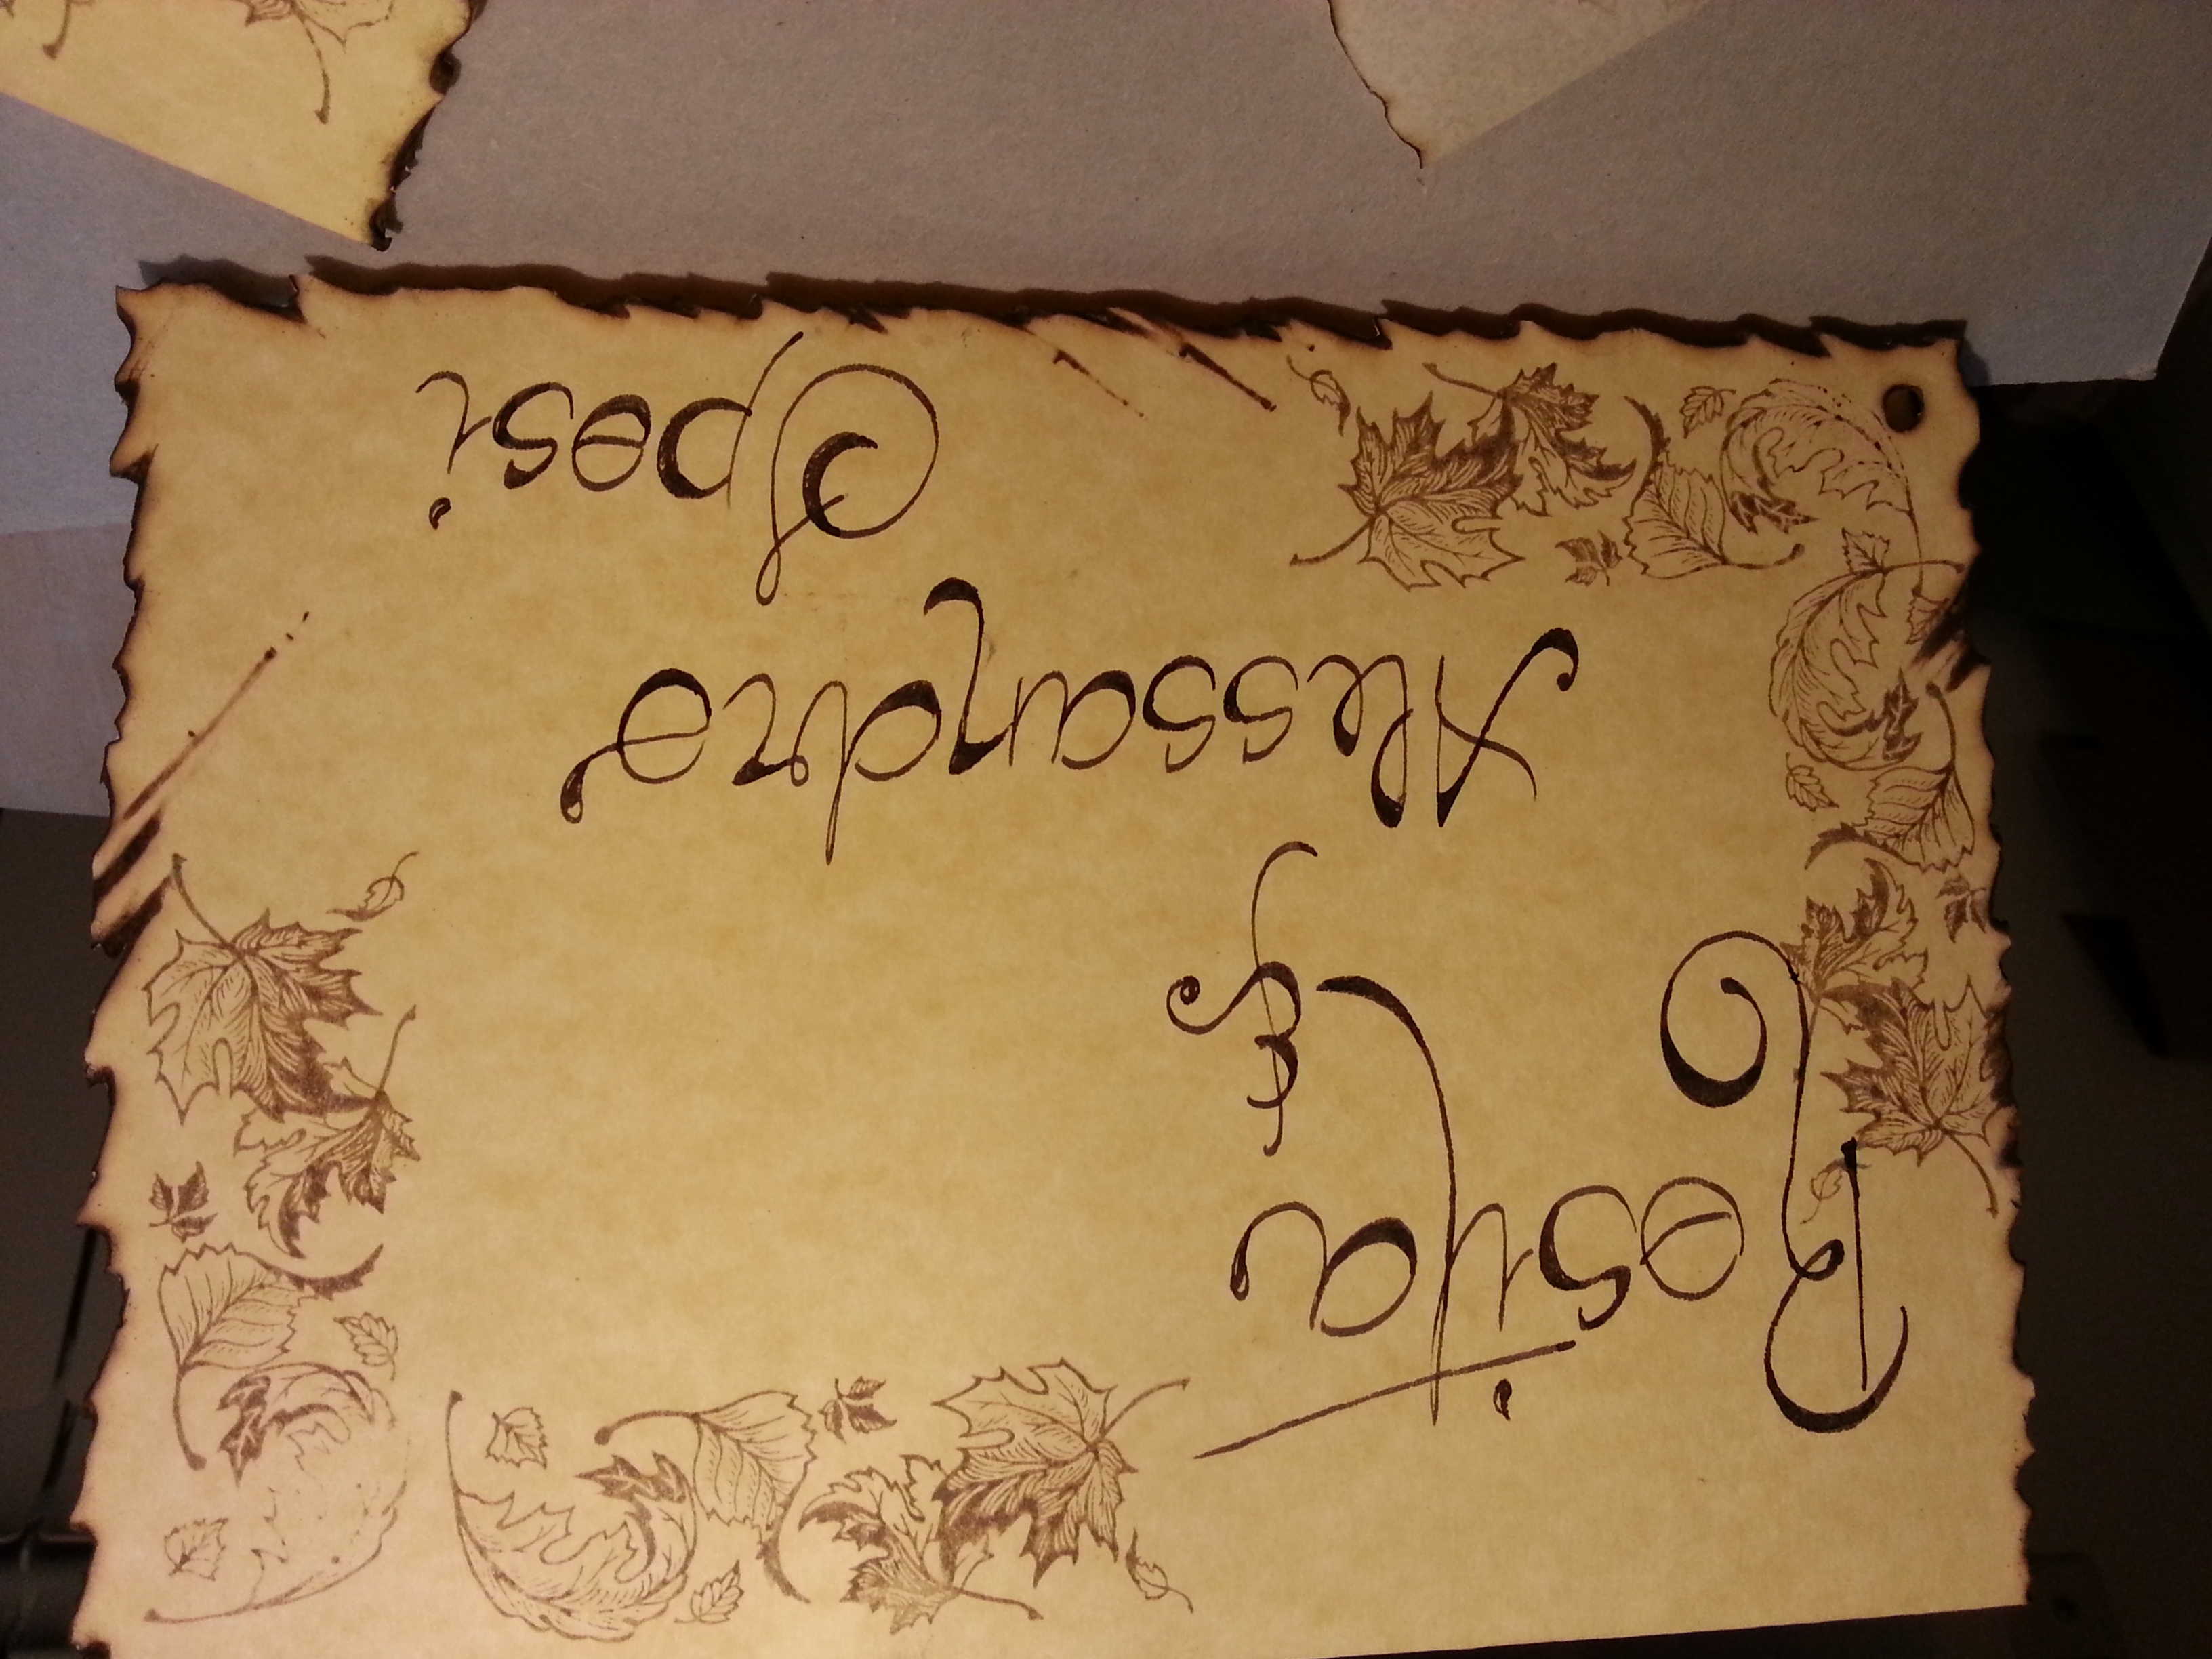 Rosita
&
Alessandro
Sposi